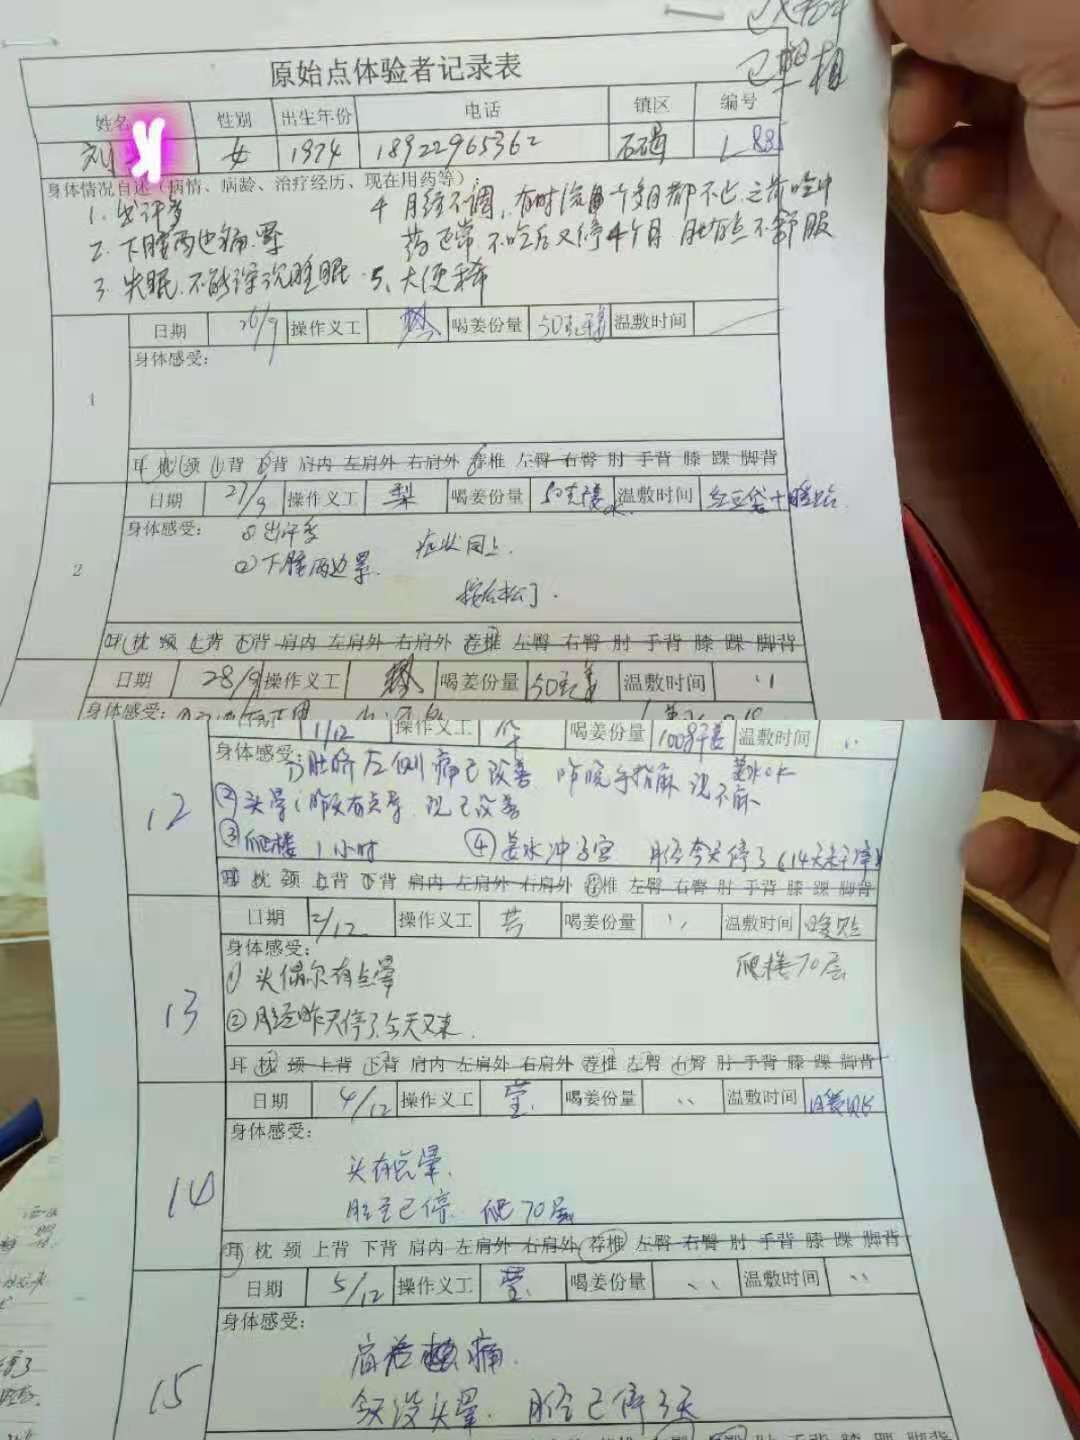 已整相
原始点体验者记录表
姓名 性别 出生年份 电话 镇区 编号
刘 K 女 1974 18922965362 石碣 L 885
身体情况自述（病情、病龄、治疗经历、现在用药等）：
1. 出汗多
2. 下腰两边痛.晕
3. 失眠.不能深沉睡眠
4 月经不调，有时流 个多月都不止，之前吃中
药正常，不吃后又停4个月 肚有点不舒服
5、大便稀
1
日期 26/9 操作义工 喝姜份量 50克干姜 温敷时间
身体感受：
耳 枕 颈 上背 下背 肩内 左肩外 右肩外 荐椎 左臀 右臀 肘 手背 膝 踝 脚背
2
日期 27/9 操作义工 梨 喝姜份量 50克干姜 温敷时间 红豆袋+暖贴
身体感受：
①出汗多
②下腰两边晕.
症状同上.
按后松了.
耳 枕 颈 上背 下背 肩内 左肩外 右肩外 荐椎 左臀 右臀 肘 手背 膝 踝 脚背
日期 28/9 操作义工 喝姜份量 50克姜 温敷时间 ﹑﹑
身体感受：
12
日期 1/12 操作义工 华 喝姜份量 100g干姜 温敷时间 ﹑﹑
身体感受：
① 肚脐左侧痛已改善 昨晚手指麻 现不麻
姜水OK
② 头晕(昨天有点晕 现已改善
③ 爬楼 1小时 ④ 姜水冲子宫 月经今天停了(14天未干净)
耳 枕 颈 上背 下背 肩内 左肩外 右肩外 荐椎 左臀 右臀 肘 手背 膝 踝 脚背
13
日期 2/12 操作义工 喝姜份量 ﹑﹑ 温敷时间 暖贴
身体感受：
① 头偶尔有点晕
爬楼70层
② 月经昨天停了今天又来.
耳 枕 颈 上背 下背 肩内 左肩外 右肩外 荐椎 左臀 右臀 肘 手背 膝 踝 脚背
14
日期 4/12 操作义工 莹. 喝姜份量 ﹑﹑ 温敷时间 暖贴
身体感受：
头有点晕.
月经已停. 爬70层
耳 枕 颈 上背 下背 肩内 左肩外 右肩外 荐椎 左臀 右臀 肘 手背 膝 踝 脚背
15
日期 5/12 操作义工 莹. 喝姜份量 ﹑﹑ 温敷时间 ﹑﹑
身体感受：
痛.
今天没头晕. 月经已停3天